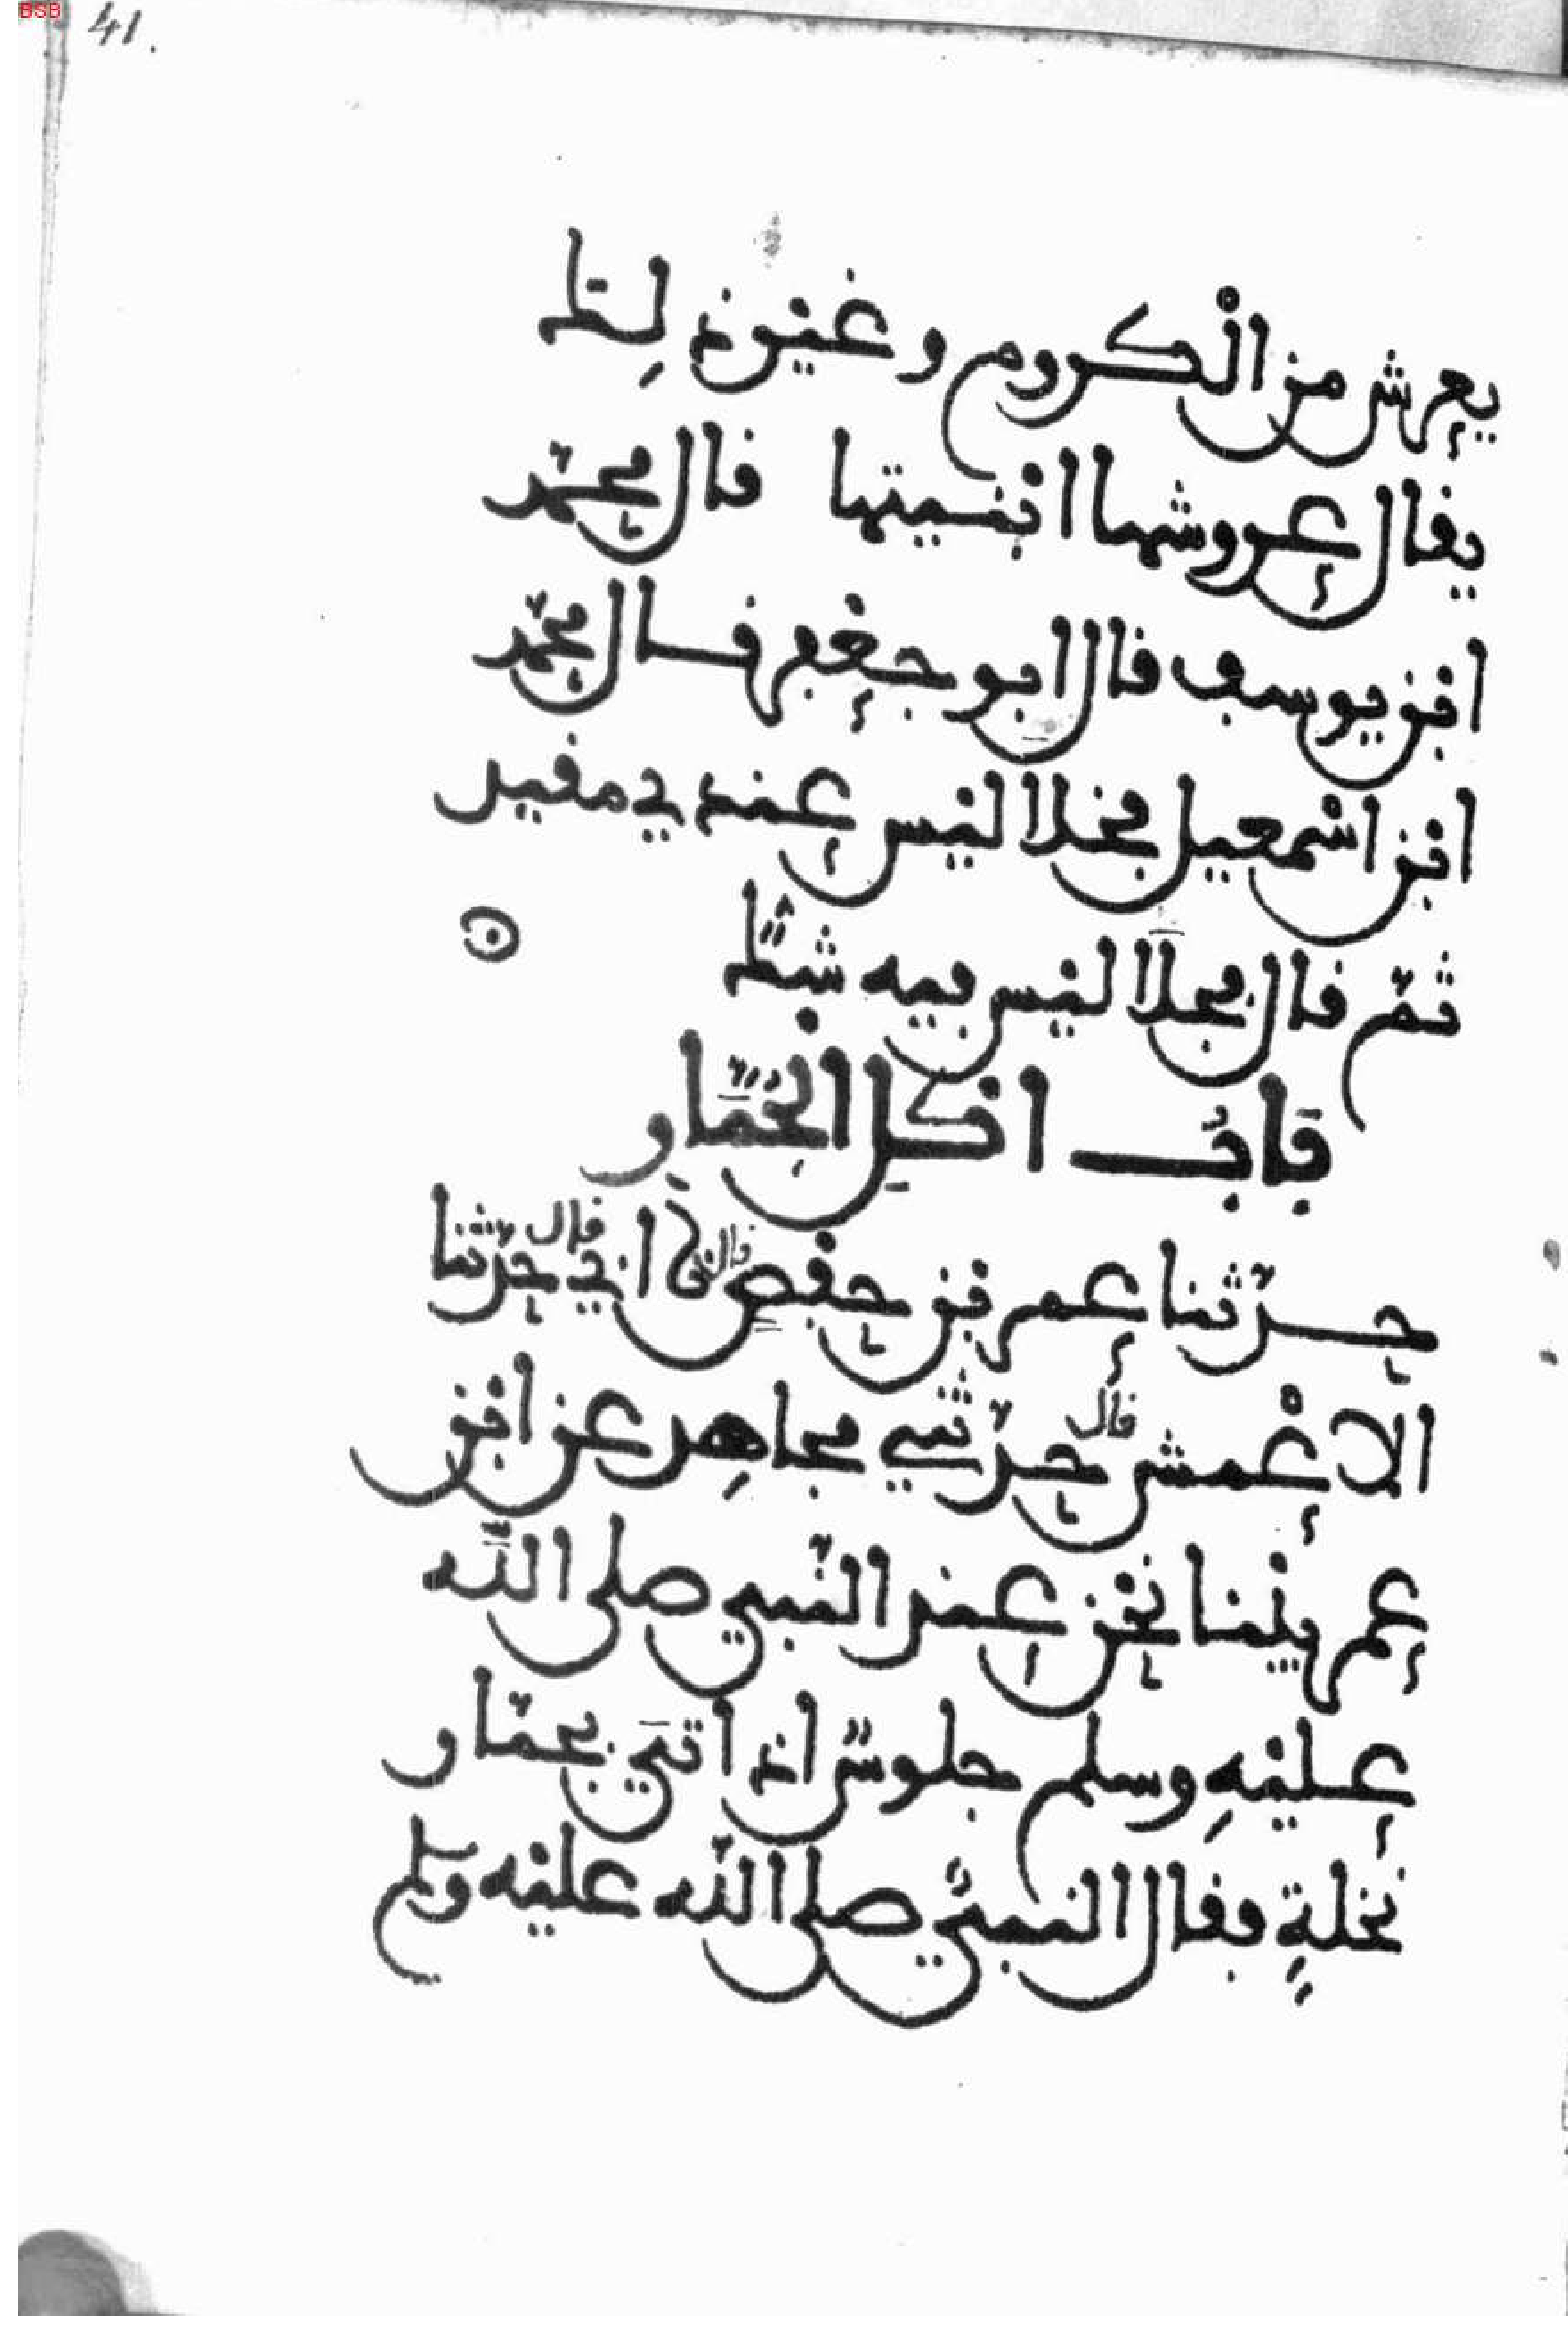 41.
يعرش من الكروم وغير ذلك
يقال عروشها ابنيتها قال محمد
ابن يوسف قال ابو جعفر قال محمد
ابن اسمعيل فخلا ليس عندي مقيد
ثم قال فجلا ليس فيه شك
باب اكل الجمار
حدثنا عمر بن حفص قال نا ابي قال حدثنا
الاعمش قال حدثني مجاهد عن ابن
عمر بينا نحن عند النبي صلى الله
عليه وسلم جلوس اذ اتي بجمار
نخلة فقال النبي صلى الله عليه وسلم
BSB